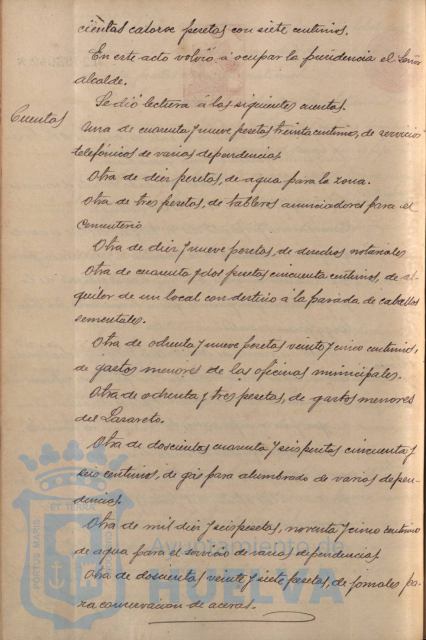 cientas catorce pesetas con siete centimos.
En este acto volvió á ocupar la presidencia el Señor
alcalde.
Se dió lectura á las siguientes cuentas.
Cuentas
Una de cuarenta y nueve pesetas treinta centimos, de servicios
telefónicos de varias dependencias.
Otra de diez pesetas, de agua para la zona.
Otra de tres pesetas, de tableros anunciadores para el
Cementerio
Otra de diez y nueve pesetas, de derechos notariales
Otra de cuarenta y dos pesetas cincuenta centimos, de al-
quiler de un local con destino á la parada de caballos
sementales.
Otra de ochenta y nueve pesetas veinte y cinco centimos,
de gastos menores de las oficinas municipales.
Otra de ochenta y tres pesetas, de gastos menores
del Lazareto.
Otra de doscientas cuarenta y seis pesetas cincuenta y
seis centimos, de gas para alumbrado de varias depen-
dencias.
Otra de mil diez y seis pesetas, noventa y cinco centimos
de agua para el servicio de varias dependencias
Otra de doscientas veinte y siete pesetas, de jornales pa-
ra conservacion de aceras.
PORTUS MARIS ET TERRAE
Ayuntamiento de
HUELVA